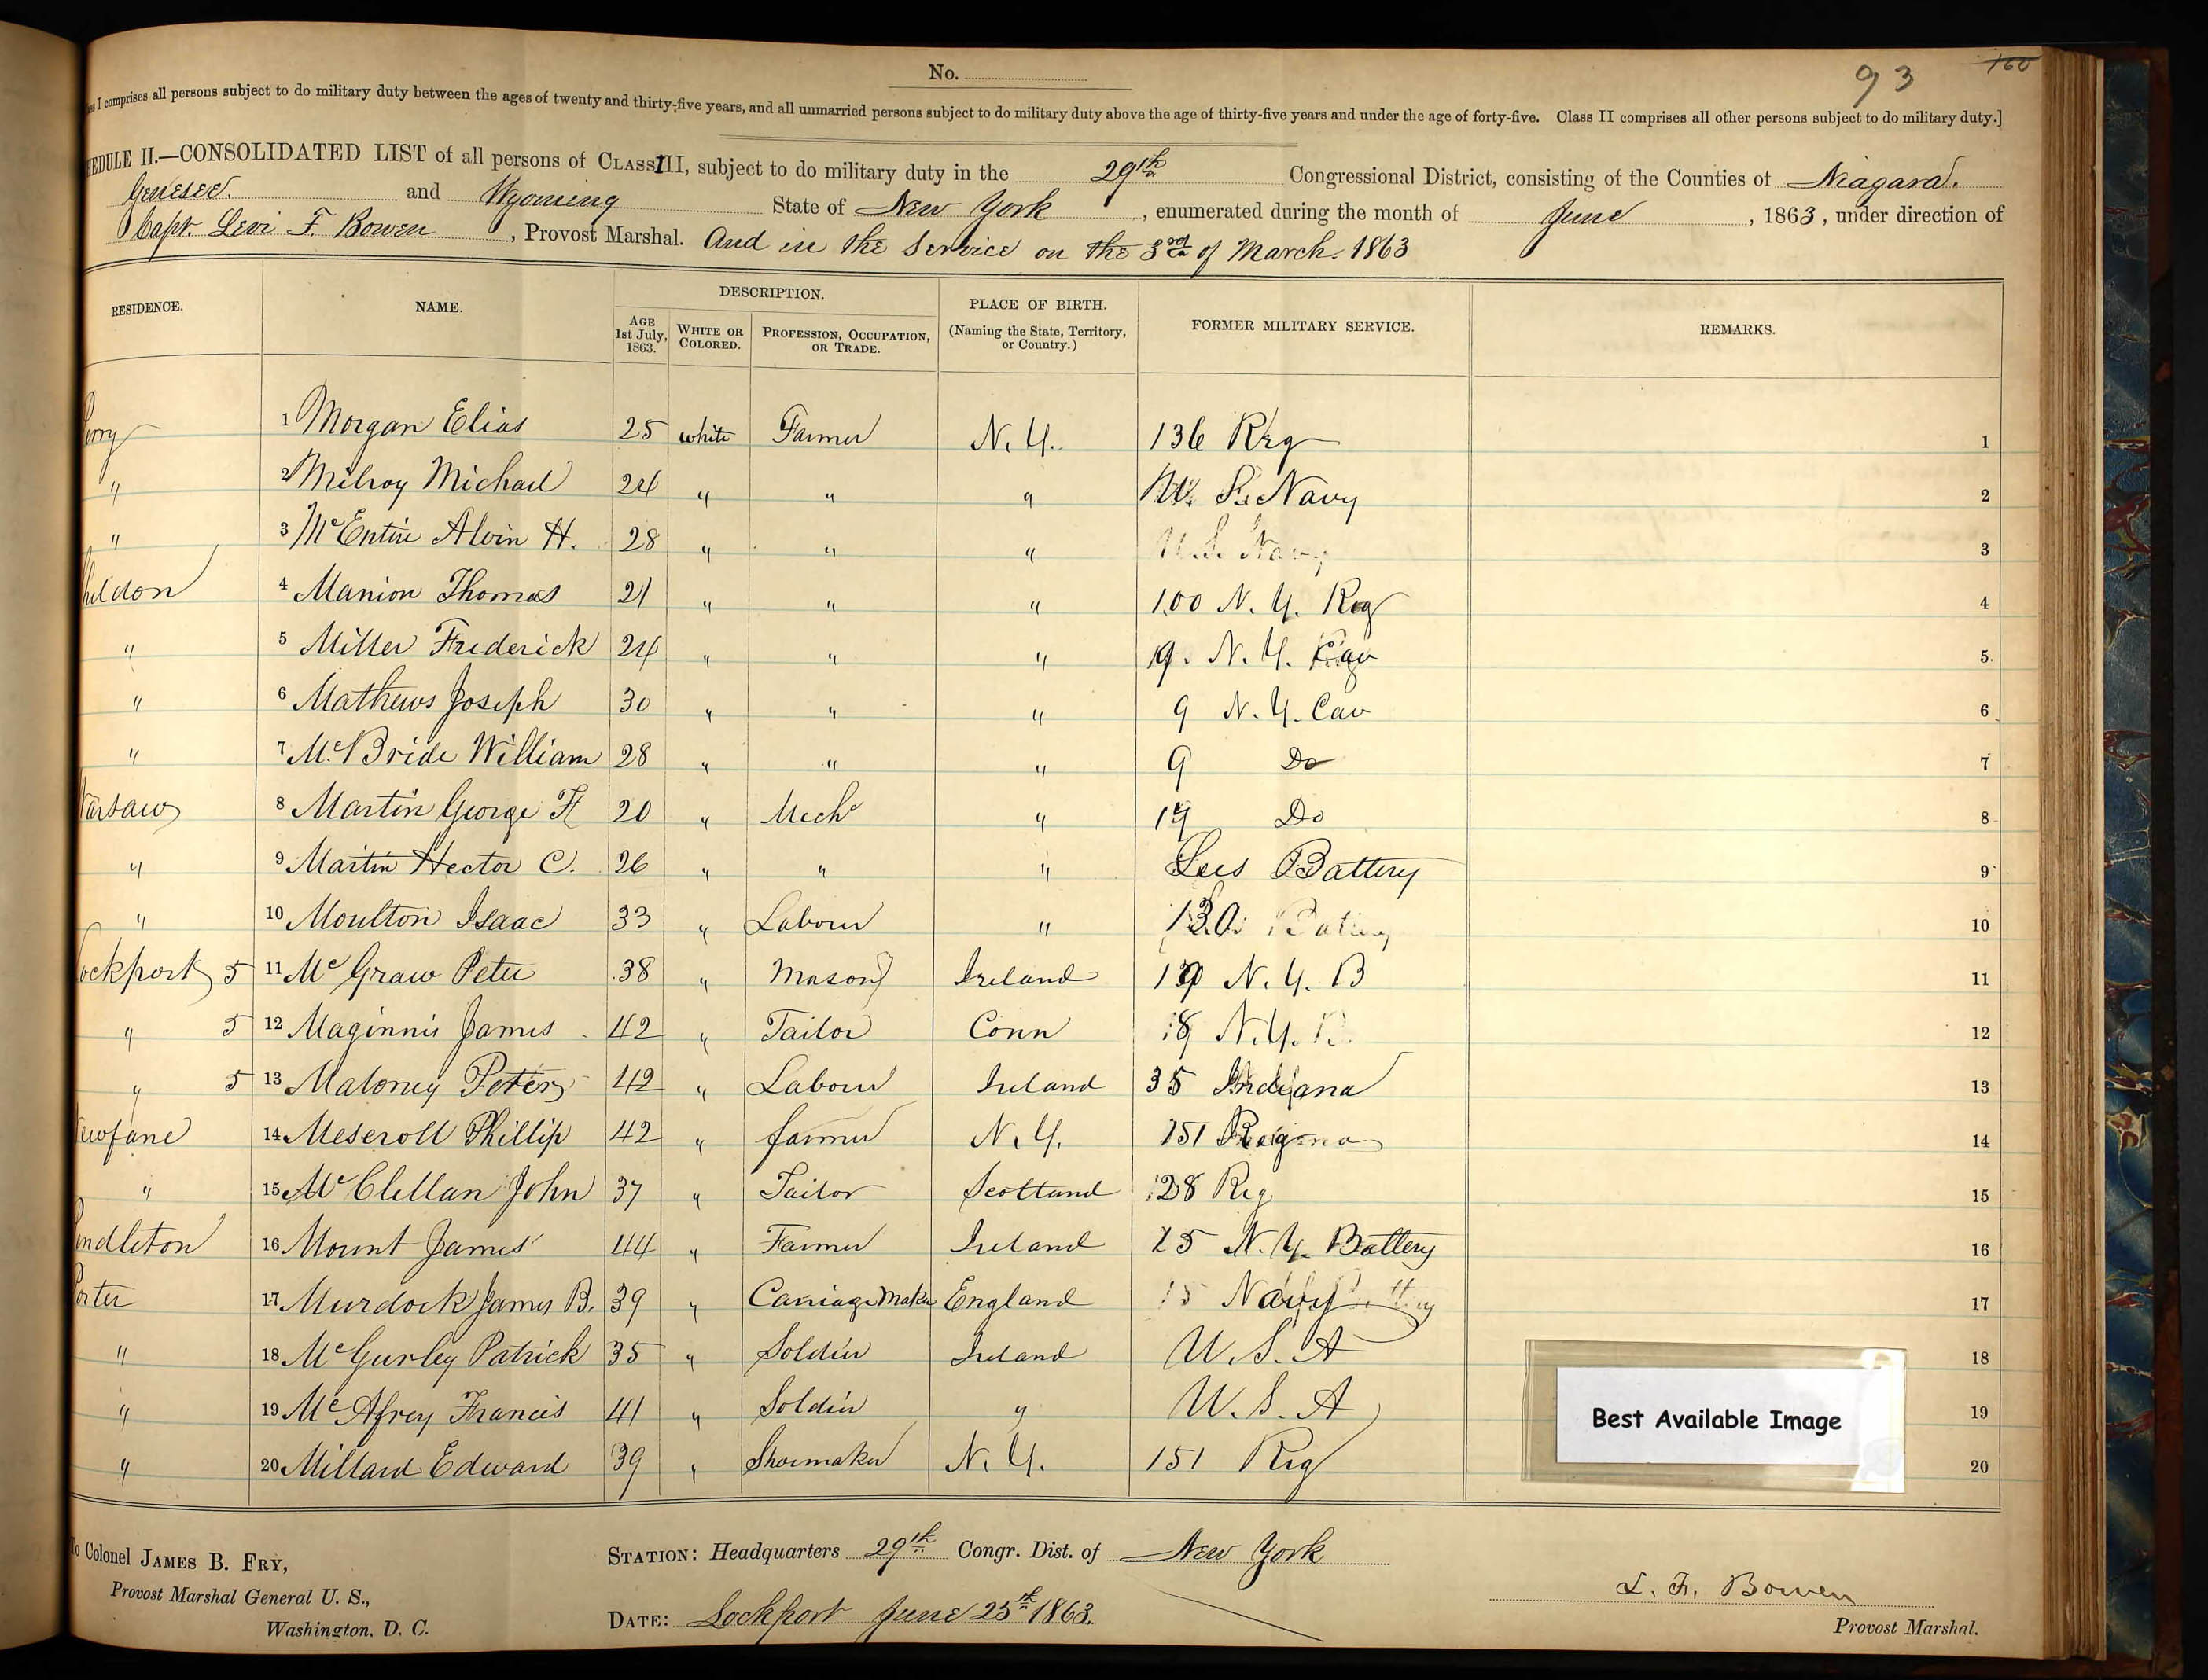 No.
93 160
I comprises all persons subject to do military duty between the ages of twenty and thirty-five years, and all unmarried persons subject to do military duty above the age of thirty-five years and under the age of forty-five. Class II comprises all other persons subject to do military duty.]
HEDULE II.—CONSOLIDATED LIST of all persons of CLASS III, subject to do military duty in the 29th Congressional District, consisting of the Counties of Niagara.
Genesee. and Wyoming State of New York, enumerated during the month of June, 1863, under direction of
Capt. Levi F. Bowen, Provost Marshal. And in the Service on the 3rd of March. 1863
RESIDENCE. NAME. DESCRIPTION. PLACE OF BIRTH. (Naming the State, Territory, or Country.) FORMER MILITARY SERVICE. REMARKS.
AGE 1st July, 1863. WHITE OR COLORED. PROFESSION, OCCUPATION, OR TRADE.
erry 1 Morgan Elias 25 white Farmer N.Y. 136 Reg 1
" 2 Milroy Michael 24 " " " S. Navy 2
" 3 McEntire Alvin H. 28 " " " U.S. Navy 3
heldon 4 Manion Thomas 21 " " " 100 N.Y. Reg 4
" 5 Miller Frederick 24 " " " 9. N.Y. Cav 5.
" 6 Mathews Joseph 30 " " " 9 N.Y. Cav 6
" 7 McBride William 28 " " " 9 Do 7
arsaw 8 Martin George H 20 " Mech " 19 Do 8
" 9 Martin Hector C. 26 " " " Lees Battery 9
" 10 Moulton Isaac 33 " Labour " 10
ockport 5 11 McGraw Peter 38 " Mason Ireland N.Y. B 11
" 5 12 Maginnis James 42 " Tailor Conn N.Y. 12
" 5 13 Maloney Peter 42 " Labour Ireland 35 Indiana 13
ewfane 14 Meseroll Phillip 42 " farmer N.Y. 151 Reg 14
" 15 McClellan John 37 " Tailor Scotland 128 Reg 15
endleton 16 Mount James 44 " Farmer Ireland 25 N.Y. Battery 16
orter 17 Murdock James B. 39 " Carriage Maker England Navy 17
" 18 McGurley Patrick 35 " Soldier Ireland U.S.A 18
" 19 McAfrey Francis 41 " Soldier " U.S.A 19
" 20 Millard Edward 39 " Shoemaker N.Y. 151 Reg 20
Best Available Image
To Colonel JAMES B. FRY,
Provost Marshal General U. S.,
Washington, D. C.
STATION: Headquarters 29th Congr. Dist. of New York
DATE: Lockport June 25th 1863.
L. F. Bowen
Provost Marshal.